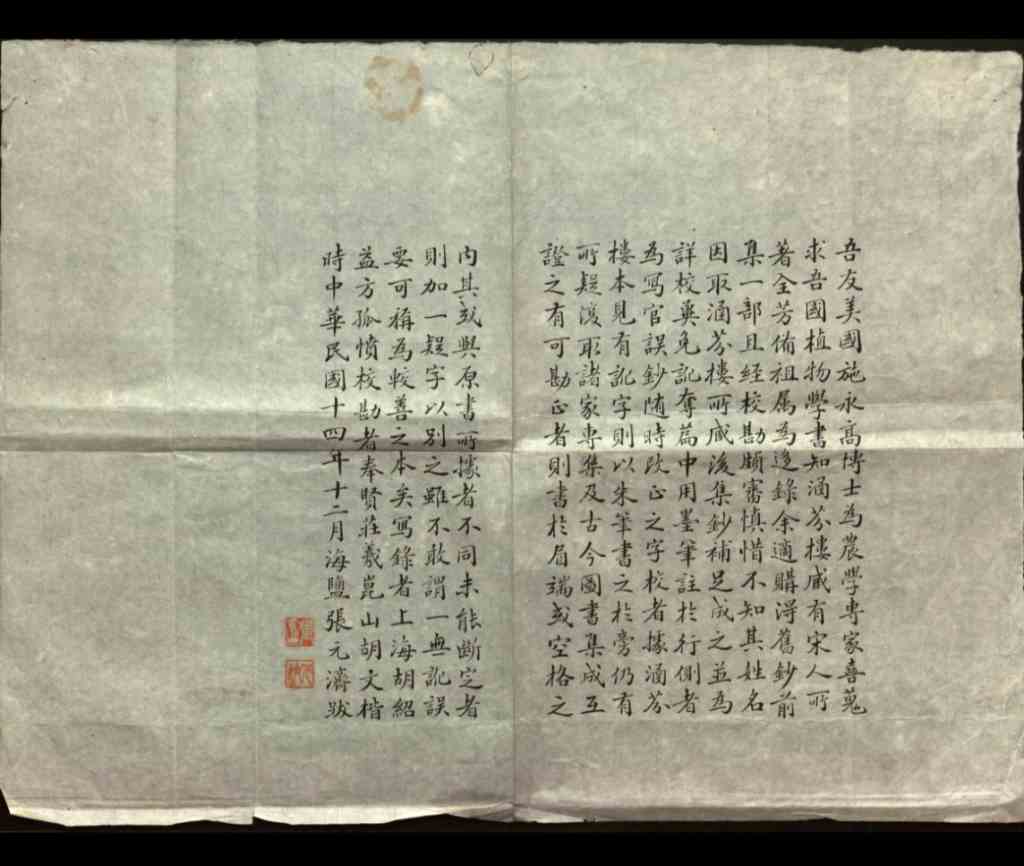 吾友美國施永高博士為農學專家喜蒐
求吾國植物學書知涵芬樓藏有宋人所
著全芳備祖属為迻錄余適購淂舊鈔前
集一部且經校勘頗審慎惜不知其姓名
因取涵芬樓所藏淩集鈔補足成之並為
詳校奠免訛奪篇中用墨筆註於行側者
為寫官誤鈔随時改正之字校者據涵芬
樓本見有訛字則以朱筆書之於旁仍有
所疑淩取諸家專集及古今圖書集成互
證之有可勘正者則書於眉端或空格之
内其或與原書所據者不同未能斷定者
則加一疑字以别之雖不敢謂一無訛誤
要可稱為較善之本矣寫錄者上海胡紹
益方孤憤校勘者奉賢莊羲崑山胡文楷
時中華民國十四年十二月海鹽張元濟跋